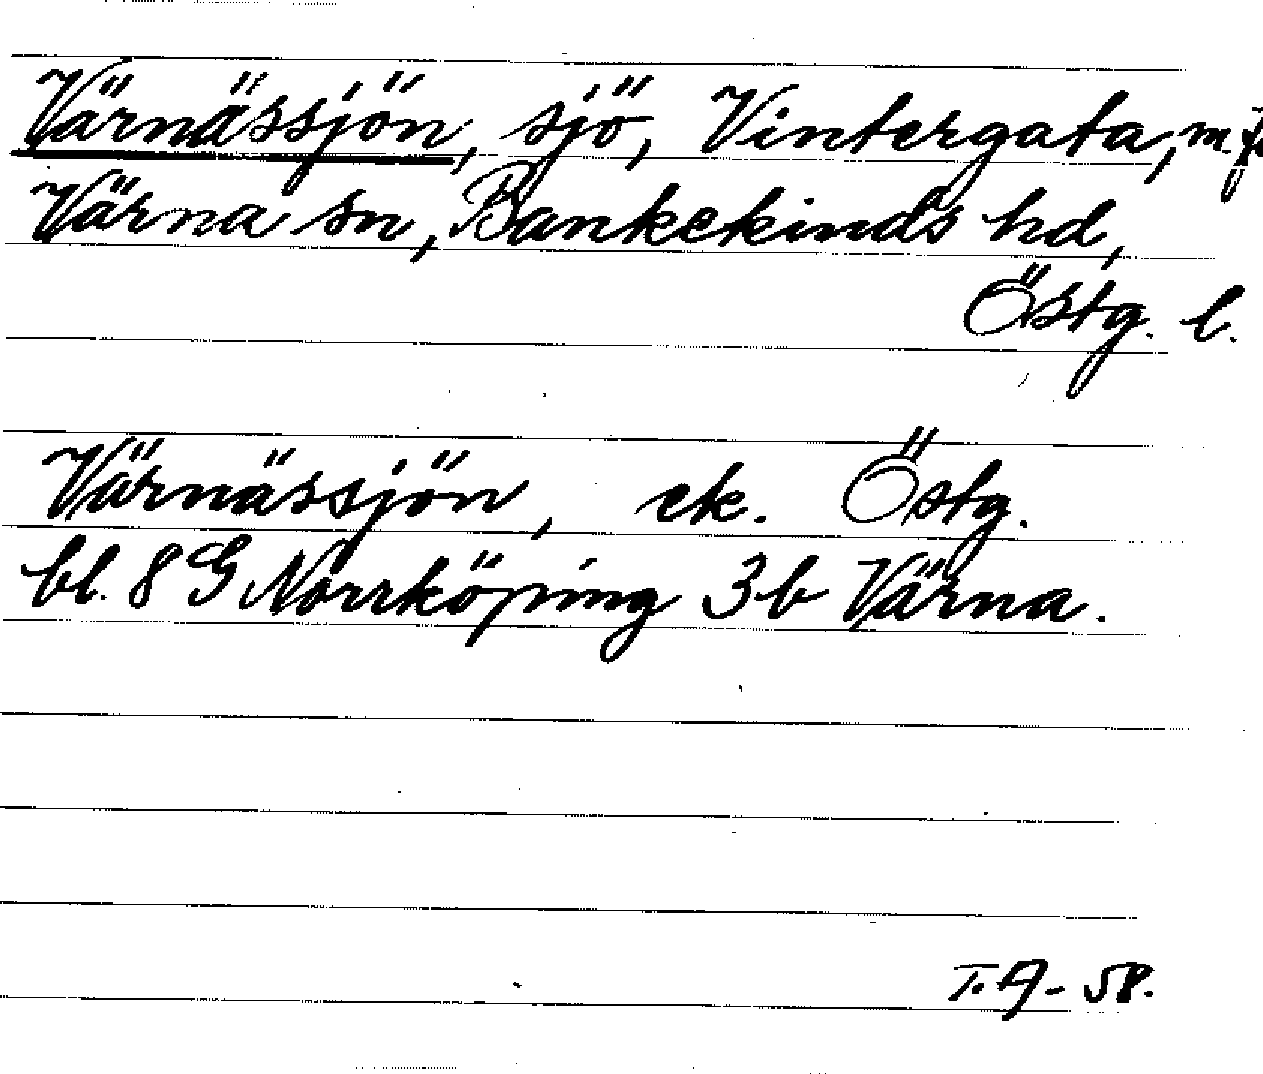 Värnässjön, sjö, Vintergata, m. fl.
Värna sn, Bankekinds hd,
Östg. l.
Värnässjön, ek. Östg.
bl. 8 G Norrköping 3b Värna.
T. A - 58.